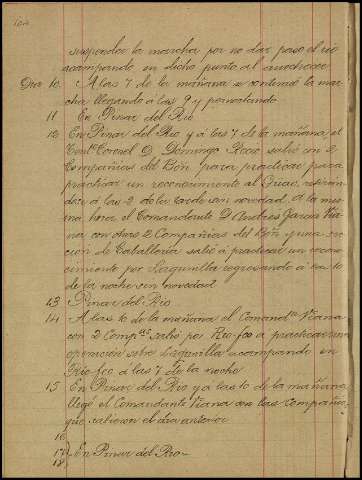 suspender la marcha por no dar paso el rio
acampando en dicho punto al anochecer
Dia 10 A las 7 de la mañana se continuó la mar-
cha llegando á las 9 y pernoctando
11 En Pinar del Rio
12 En Pinar del Rio y á las 7 de la mañana, el
Tente Coronel D. Domingo salió con 2
Compañias del Bón para practicar para
practicar un reconocimiento al retirán-
dose á las 2 de la tarde sin novedad. A la mis-
ma hora el Comandante D. Andres Garcia Via-
na con otras 2 Compañias del Bón y una sec-
ción de Caballeria salió á practicar un recono-
cimiento por Lagunilla regresando á las 10
de la noche sin novedad
13 Pinar del Rio
14 A las 10 de la mañana el Comandte Viana
con 2 Compas salió por Rio-feo á practicar una
operación sobre Lagunilla acampando en
Rio-feo á las 7 de la noche
15 En Pinar del Rio y á las 10 de la mañana
llegó el Comandante Viana con las Compañias
que salieron el dia anterior
16
17 En Pinar del Rio-
18